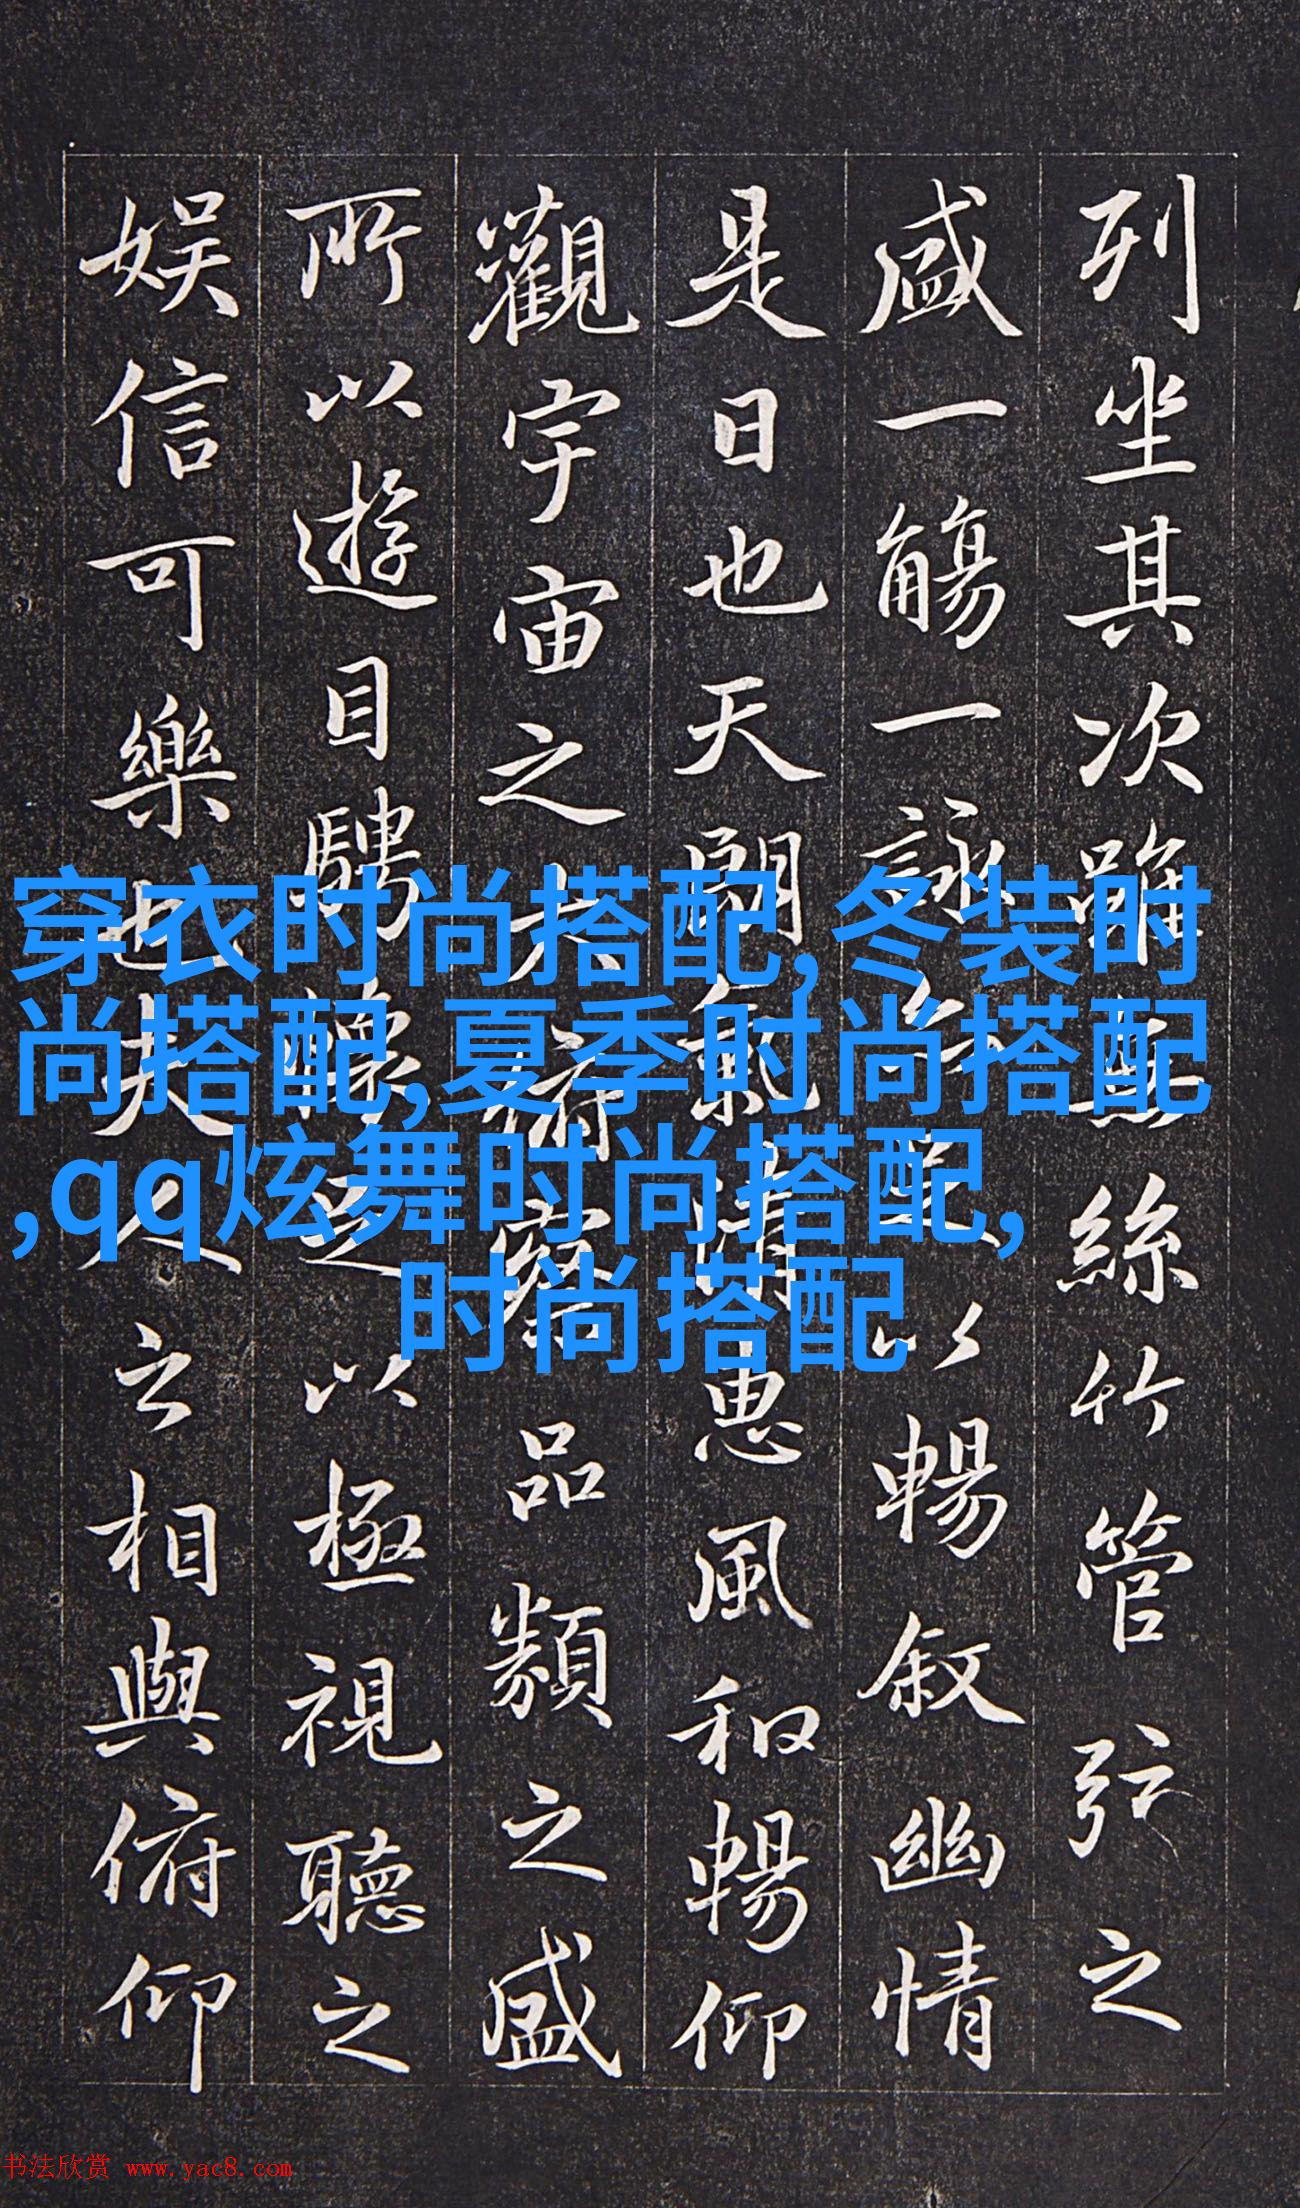 列坐其次雖無絲竹管弦之
盛一觴一詠亦足以暢敘幽情
是日也天朗氣清惠風和暢仰
觀宇宙之大俯察品類之盛
所以遊目騁懷足以極視聽之
娛信可樂也夫人之相與俯仰
穿衣时尚搭配,冬装时
尚搭配,夏季时尚搭配
,qq炫舞时尚搭配,
时尚搭配
书法欣赏 www.yac8.com